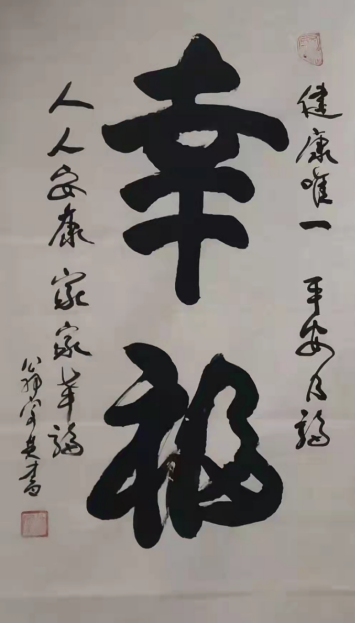 健康唯一 平安乃福
幸福
人人安康 家家幸福